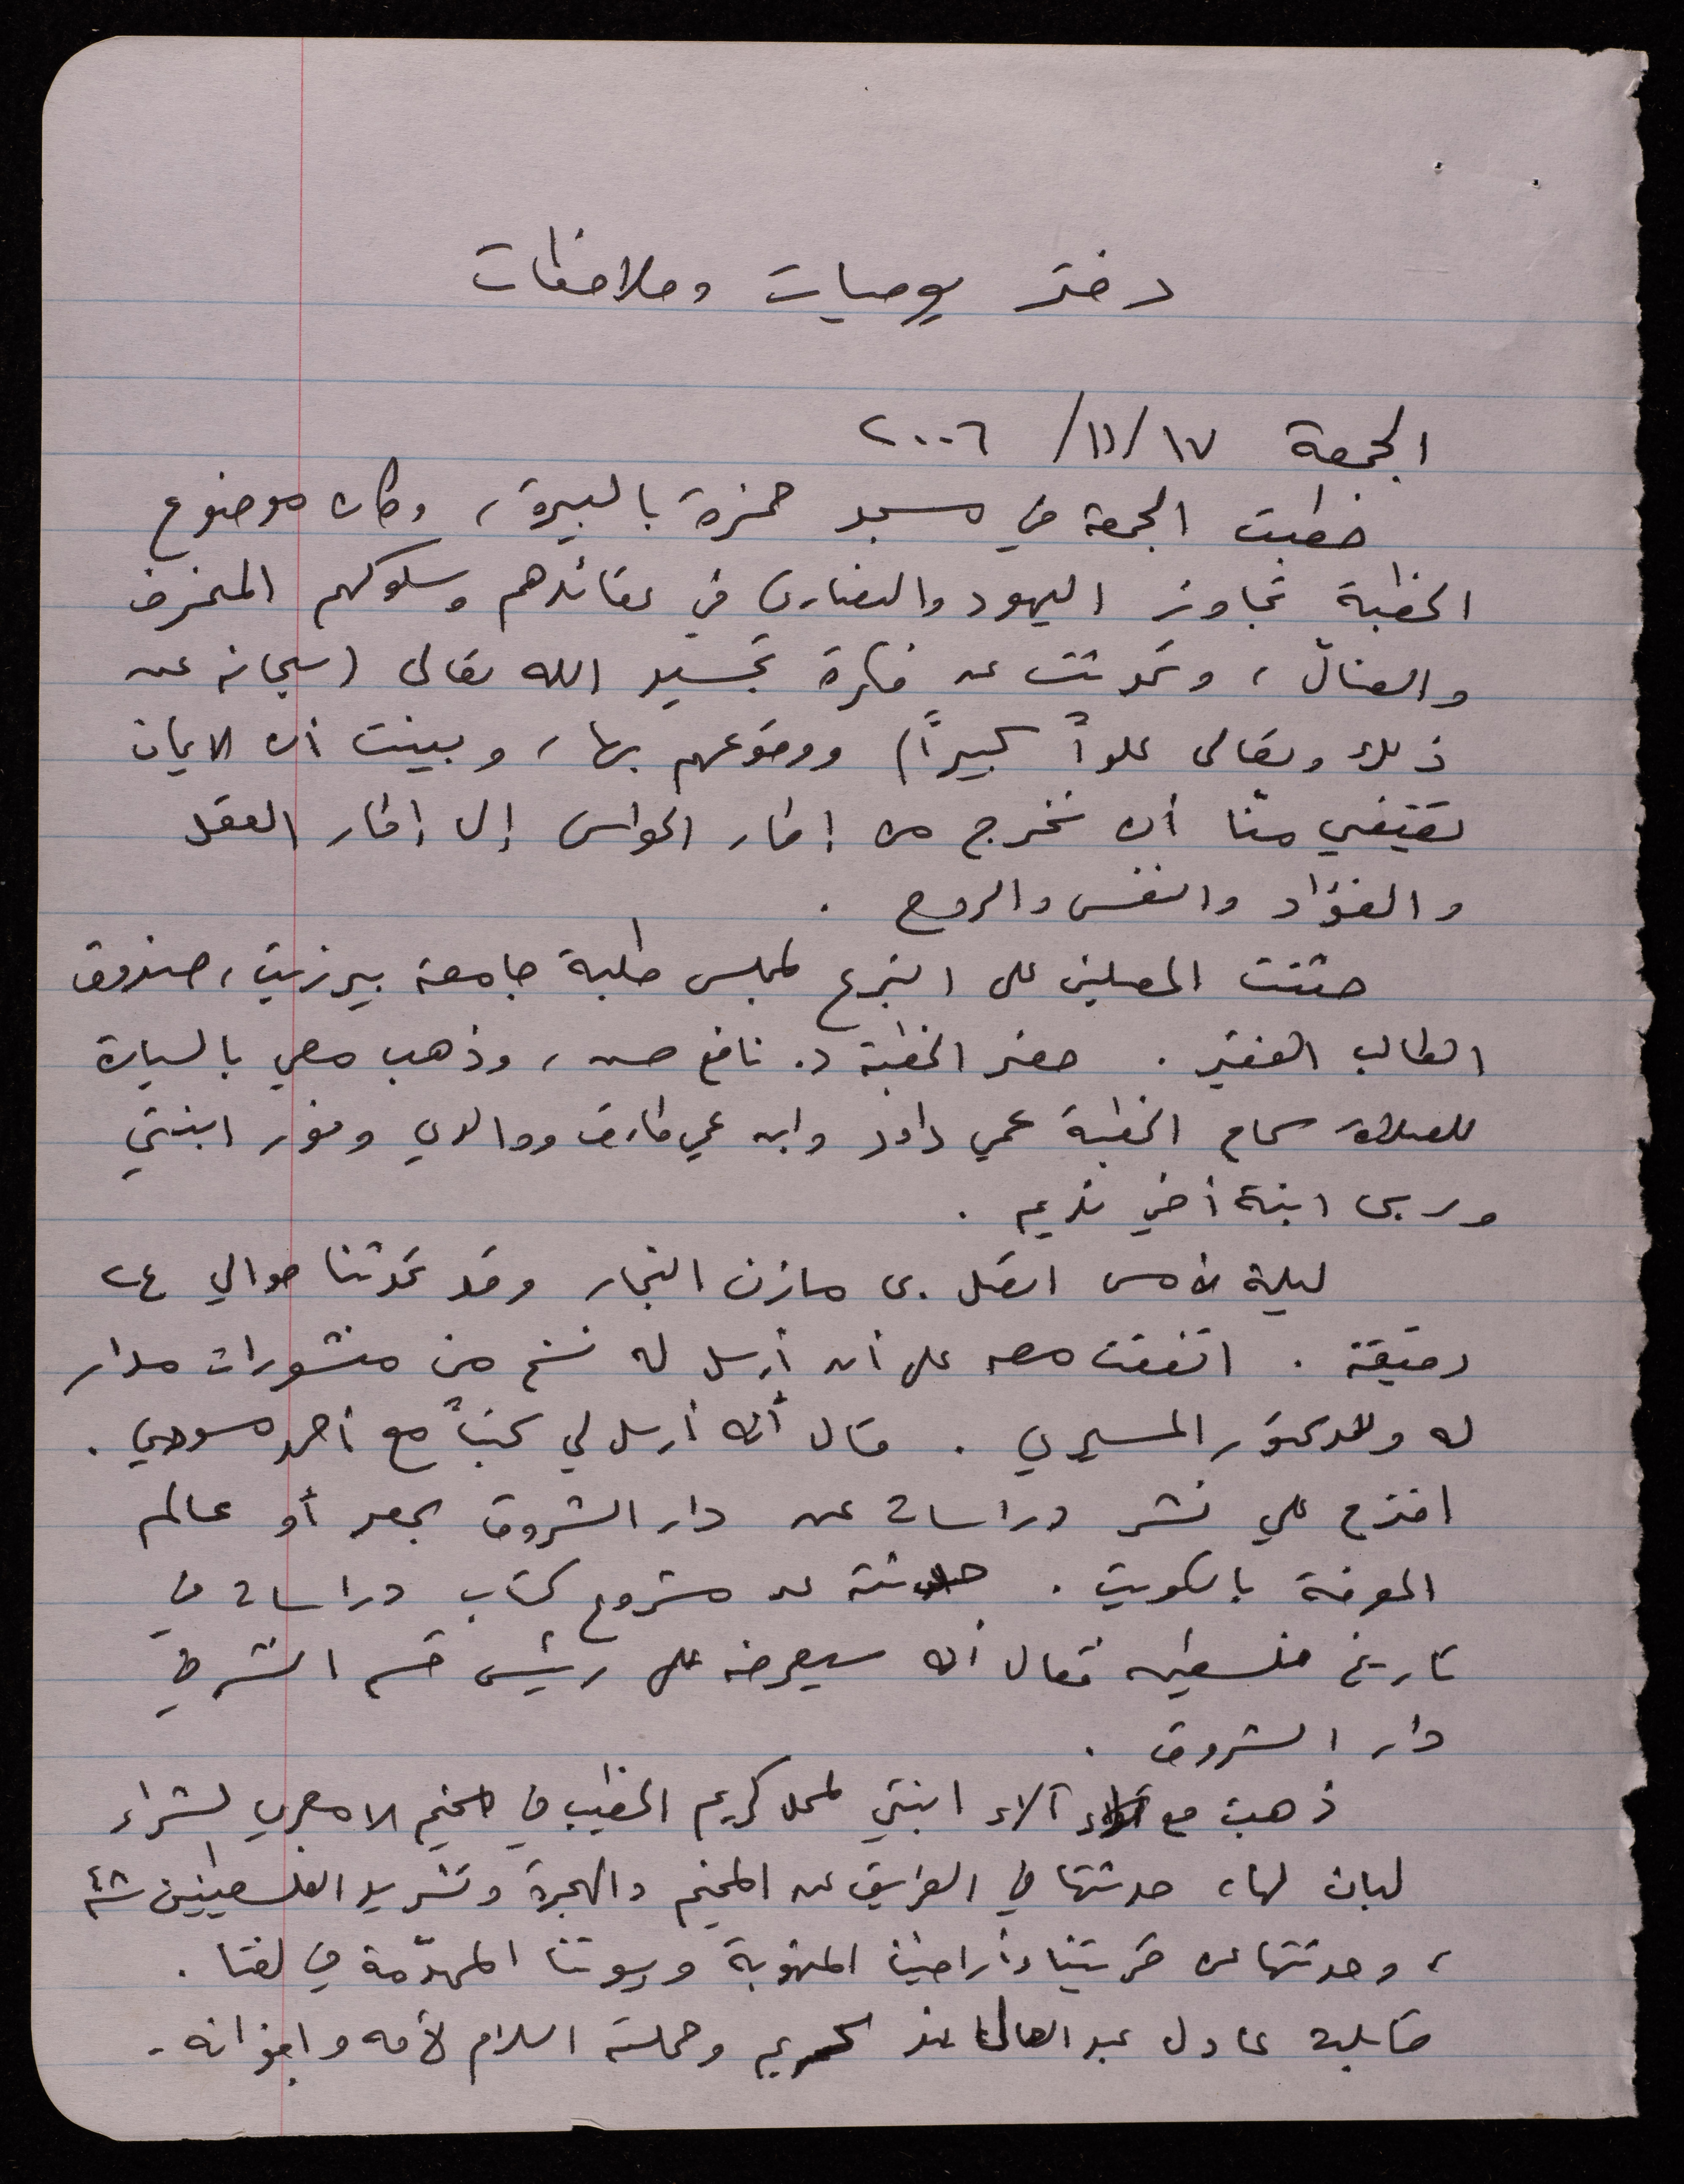 دفتر يوميات وملاحظات
الجمعة ١٧/١١/ ٢٠٠٦
خطبت الجمعة في مسجد حمزة بالبيرة، وكان موضوع
الخطبة تجاوز اليهود والنصارى في عقائدهم وسلوكهم المنحرف
والضالّ، وتحدثت عن فكرة تجسيد الله تعالى (سبحانه عن
ذلك وتعالى علواً كبيراً) ووقوعهم بها، وبينت أن الايمان
تقتضي منّا أن نخرج من إطار الحواس إلى إطار العقل
والفؤاد والنفس والروح .
حثثت المصلين على التبرع لمجلس طلبة جامعة بيرزيت، صندوق
الطالب الفقير . حضر الخطبة د. نافع حسن، وذهب معي بالسيارة
للصلاة سماع الخطبة عمي داود وابن عمي طارق ووالدي ونور ابنتي
وربى ابنة أخي نديم .
ليلة الأمس اتصل بي مازن النجار وقد تحدثنا حوالي ٢٤
دقيقة . اتفقت معه على أن أرسل له نسخ من منشورات مدار
له وللدكتور المسيري . قال أنه أرسل لي كتباً مع أحمد .
اقترح علي نشر دراسات عن دار الشروق بمصر أو عالم
المعرفة بالكويت . حدثته عن مشروع كتاب دراسات في
تاريخ فلسطين فقال أنه سيعرضه على رئيس قسم النشر في
دار الشروق .
ذهبت مع آلاء ابنتي لمحل كريم الخطيب في مخيم الامعري لشراء
لبان لها، حدثتها في الطريق عن المخيم والهجرة وتشريد الفلسطينيين ٤٨
، وحدثتها عن قريتنا وأراضينا المنهوبة وبيوتنا المهدّمة في لفتا .
قابلت عادل عبد العال عند كريم وحملته السلام لأمه واخوانه .